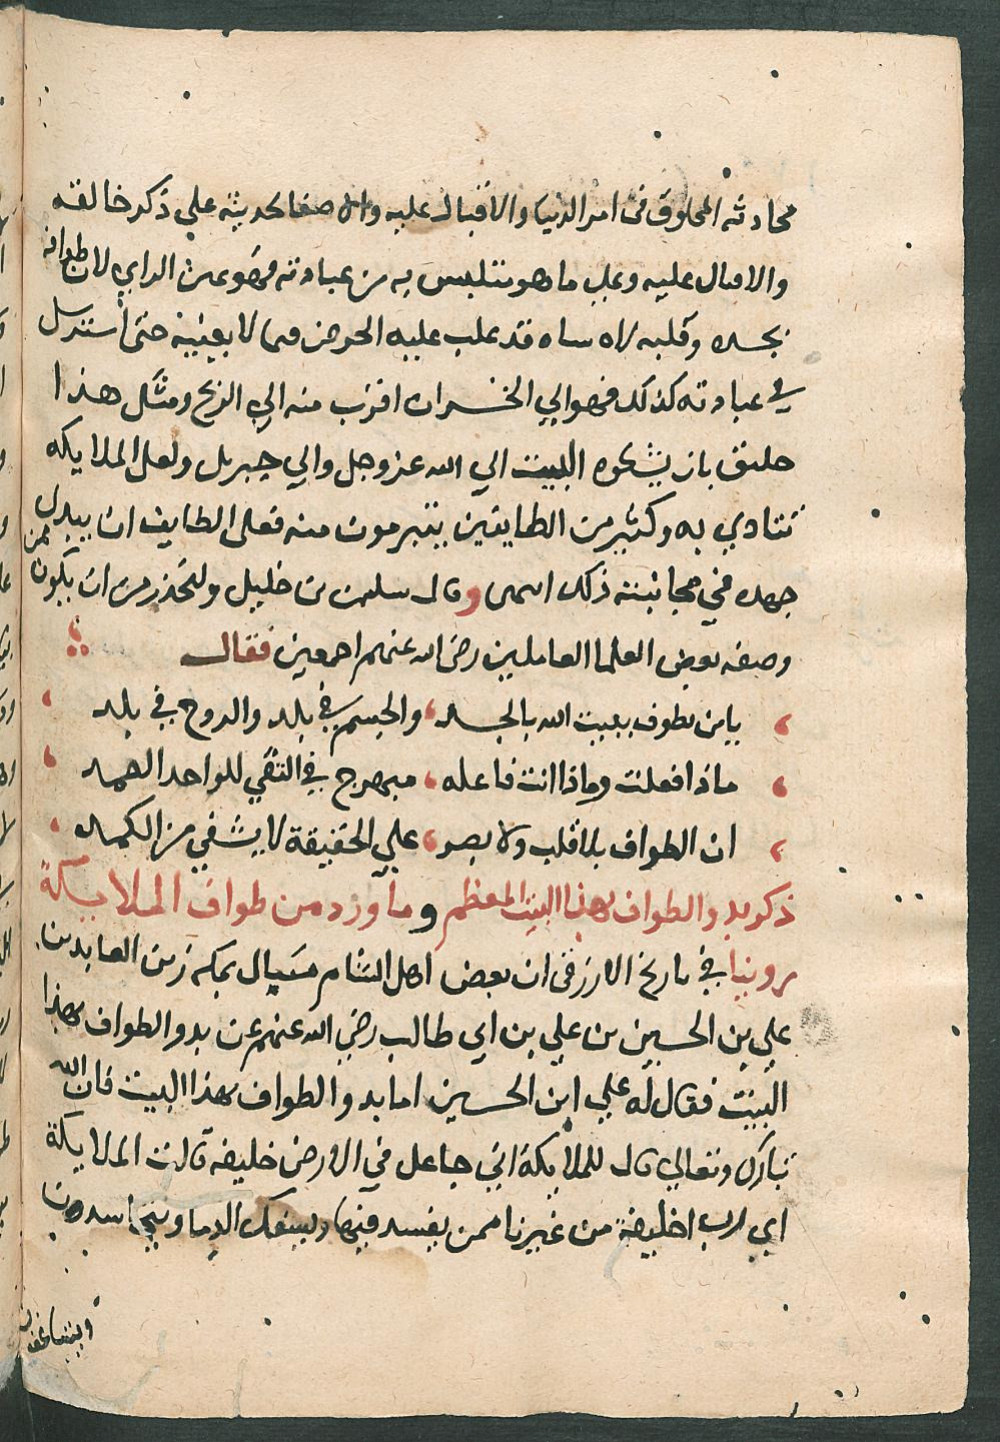 محادثه المخلوق في امر الدنيا والاقبال عليه والاصغا لحديثه علي ذكر خالقه
والاقبال عليه وعلي ما هو متلبس به من عبادته فهو عين الراي لا طوافه
بجسده وقلبه لاه ساه قد غلب عليه الخوض فيما لا يعنيه حتي استرسل
في عبادته كذلك فهو الي الخسران اقرب منه الي الربح ومثل هذا
خليق بان يشكوه البيت الي الله عز وجل والي جبريل ولعل الملايكه
تتادي به وكثير من الطايفين يتبرمون منه فعلي الطايف ان يبدل
جهده في مجانبته ذلك انتهي وقال سليمن بن خليل وليحذر من ان يكون ممن
وصفه بعض العلما العاملين رضي الله عنهم اجمعين فقال
يا من يطوف ببيت الله بالجسد والجسم في بلد والروح في بلد
ماذا فعلت وماذا انت فاعله مبهرج في التقي للواحد الصمد
ان الطواف بلا قلب ولا بصر علي الحقيقة لا يشفي من الكمد
ذكر بدو الطواف بهذا البيت المعظم وما ورد من طواف الملايكة
روينا في تاريخ الازرقي ان بعض اهل الشام سيال بمكه زين العابدين
علي بن الحسين بن علي بن ابي طالب رضي الله عنهم عن بدو الطواف بهذا
البيت فقال له علي ابن الحسين اما بدو الطواف بهذا البيت فان الله
تبارك وتعالي قال للملايكة اني جاعل في الارض خليفه قالت الملايكة
اي رب اخليفة من غيرنا ممن يفسد فيها ويسفك الدما ويتحاسدون
ويتباغضون